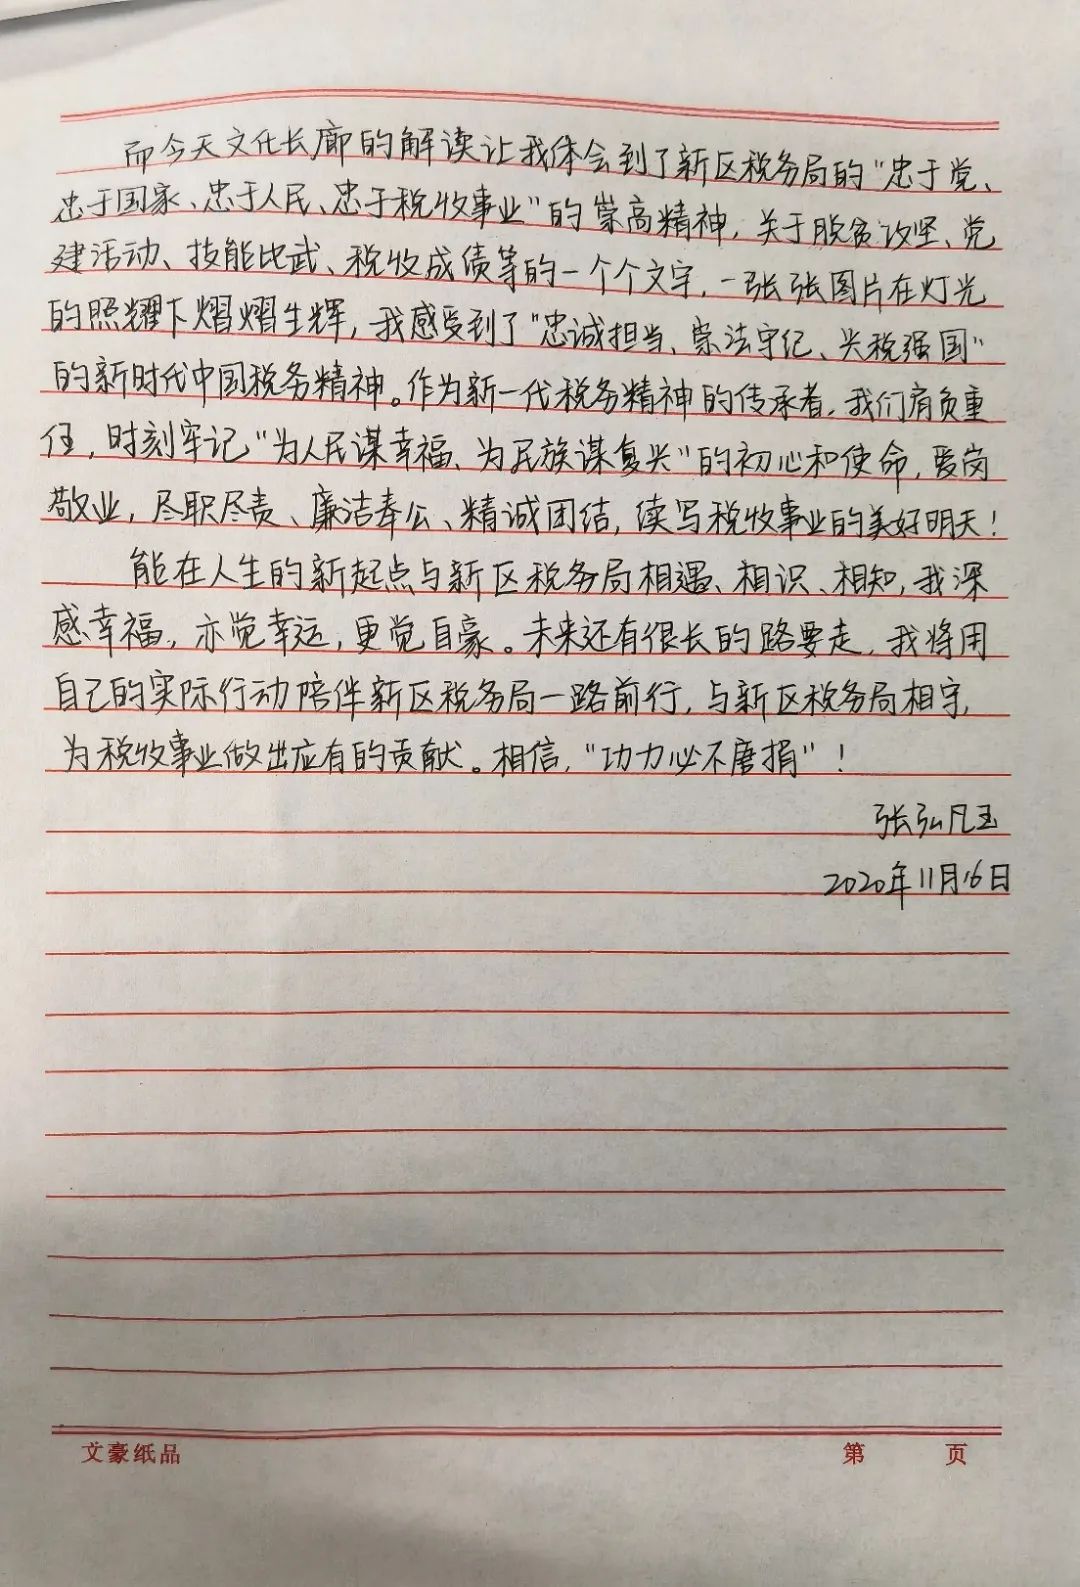 而今天文化长廊的解读让我体会到了新区税务局的“忠于党、
忠于国家、忠于人民、忠于税收事业”的崇高精神，关于脱贫攻坚、党
建活动、技能比武、税收成绩等的一个个文字，一张张图片在灯光
的照耀下熠熠生辉，我感受到了“忠诚担当、崇法守纪、兴税强国”
的新时代中国税务精神。作为新一代税务精神的传承者，我们肩负重
任，时刻牢记“为人民谋幸福、为民族谋复兴”的初心和使命，爱岗
敬业，尽职尽责、廉洁奉公、精诚团结，续写税收事业的美好明天！
能在人生的新起点与新区税务局相遇、相识、相知，我深
感幸福，亦觉幸运，更觉自豪。未来还有很长的路要走，我将用
自己的实际行动陪伴新区税务局一路前行，与新区税务局相守，
为税收事业做出应有的贡献。相信，“功力必不唐捐”！
张弘凡玉
2020年11月16日
文豪纸品 第 页